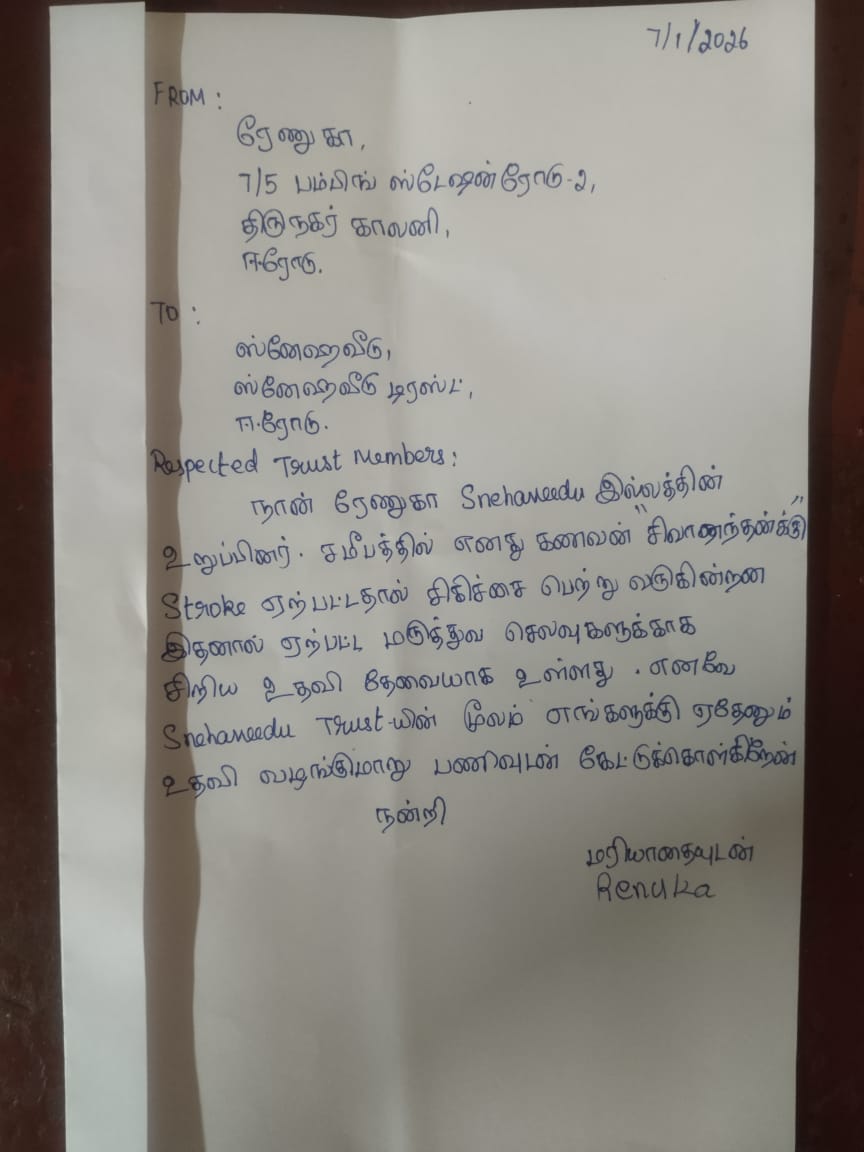 7/1/2026
FROM :
ரேணுகா,
7/5 பம்பிங் ஸ்டேஷன்ரோடு-2,
திருநகர் காலனி,
ஈரோடு.
TO :
ஸ்னேஹவீடு,
ஸ்னேஹவீடு டிரஸ்ட்,
ஈரோடு.
Respected Trust Members :
நான் ரேணுகா Snehaveedu இல்லத்தின்
உறுப்பினர். சமீபத்தில் எனது கணவன் "சிவானந்தன்க்கு"
Stroke ஏற்பட்டதால் சிகிச்சை பெற்று வருகின்றன
இதனால் ஏற்பட்ட மருத்துவ செலவுகளுக்காக
சிறிய உதவி தேவையாக உள்ளது. எனவே
Snehaveedu Trust-யின் மூலம் எங்களுக்கு ஏதேனும்
உதவி வழங்குமாறு பணிவுடன் கேட்டுக்கொள்கிறேன்
நன்றி
மரியாதையுடன்
Renuka